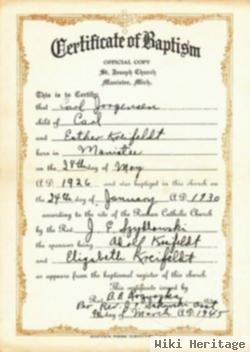 Certificate of Baptism
OFFICIAL COPY
St. Joseph Church
Manistee, Mich.
This is to Certify:
that Carl Jorgensen
child of Carl
and Esther Kreifeldt
born in Manistee
on the 28th day of May
A.D. 1926 and was baptized in this church on
the 24th day of January A.D. 1930
according to the rite of the Roman Catholic Church
by the Rev. J. E. Szydlowski
the sponsors being Adolf Kreifeldt
and Elizabeth Kreifeldt
as appears from the baptismal register of this church.
This certificate issued by
Rev.
Per Rev. J.
day of March A.D. 1945
Wiki Heritage